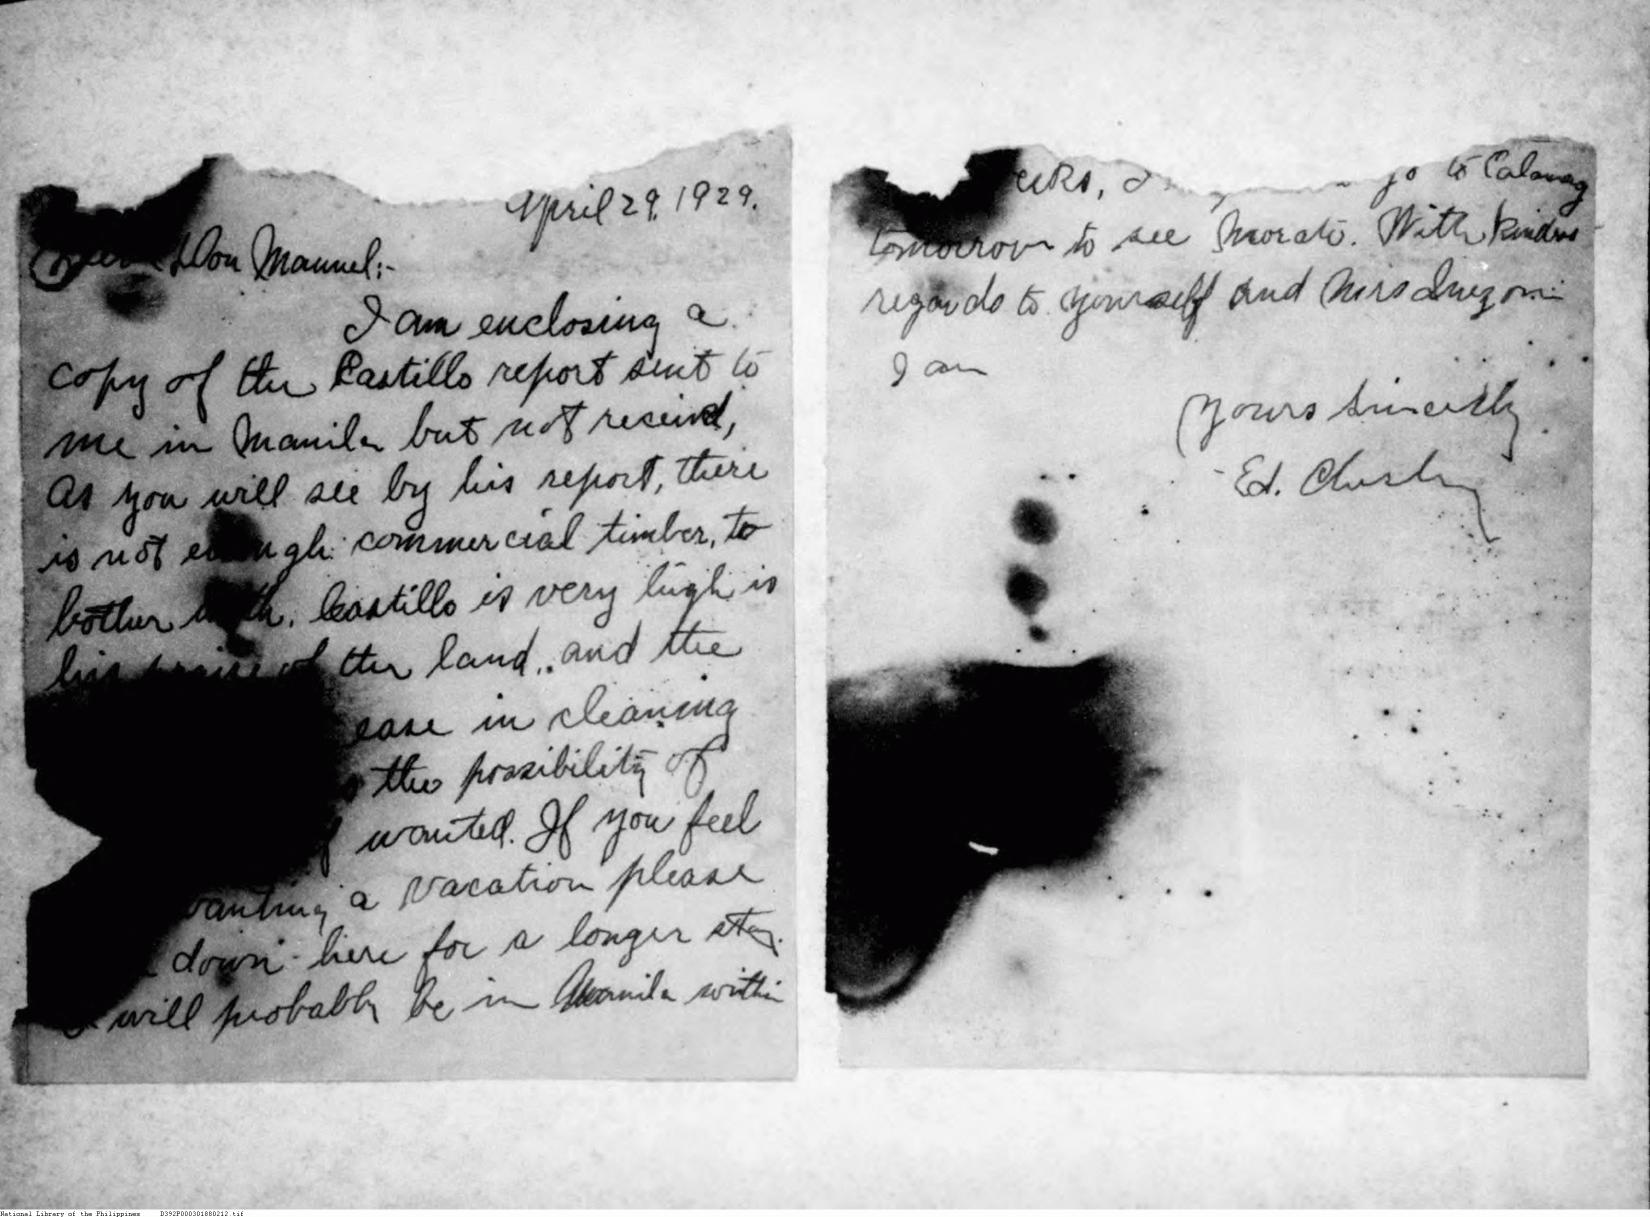 April 29, 1929.
Dear Don Manuel:-
I am enclosing a
copy of the Castillo report sent to
me in Manila but not receivd,
As you will see by his report, there
is not enough commercial timber, to
bother with. Castillo is very high is
his praise of the land, and the
ease in cleaning
the possibility of
wanted. If you feel
wanting a vacation please
down here for a longer stay.
I will probably be in Manila within
go to Calauag
tomorrow to see Morato. With kindest
regards to yourself and Mrs
I am
Yours Sincerely
Ed.
National Library of the Philippines D392P000301880212.tif